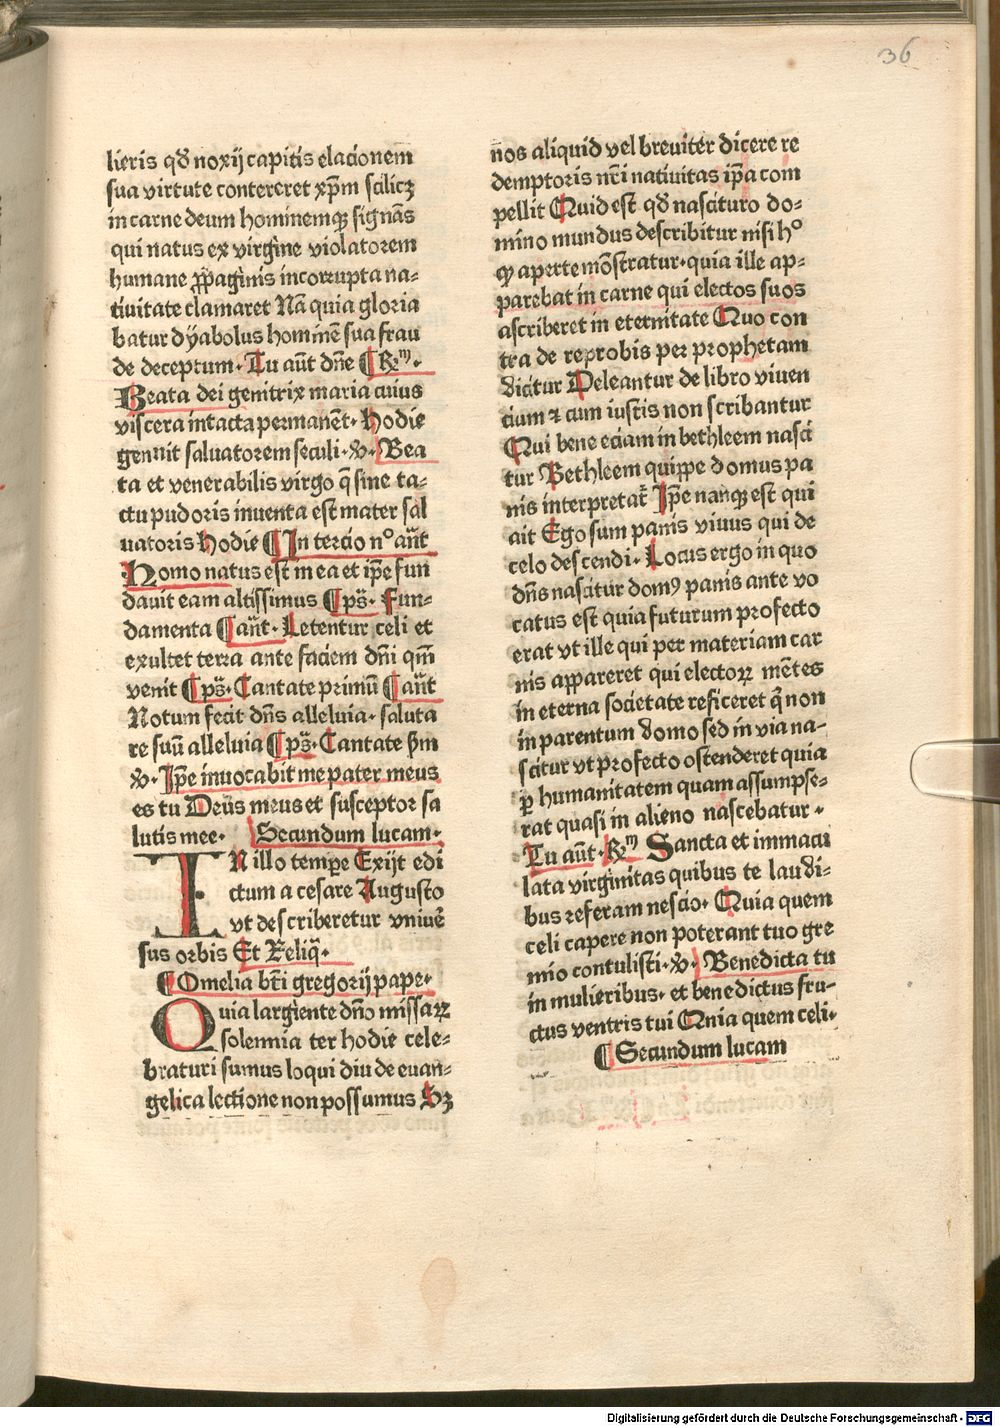 36
lieris qđ noxij capitis elacionem
sua virtute contereret xp̄m scilicꝫ
in carne deum hominemqꝫ signās
qui natus ex virgine violatorem
humane ꝓpaginis incorrupta na-
tiuitate clamaret Nā quia gloria
batur dyabolus hominē sua frau
de deceptum. Tu aūt dn̄e ¶ Rm.
Beata dei genitrix maria cuius
viscera intacta permanēt. hodie
genuit saluatorem seculi. v̄. Bea
ta et venerabilis virgo q̄ sine ta-
ctu pudoris inuenta est mater sal
uatoris hodie ¶ In tercio n° an̄t
Homo natus est in ea et ip̄e fun
dauit eam altissimus ¶ ps̄. Fun-
damenta ¶ an̄t. Letentur celi et
exultet terra ante faciem dn̄i qm̄
venit ¶ ps̄. Cantate primū ¶ an̄t
Notum fecit dn̄s alleluia. saluta
re suū alleluia ¶ ps̄. Cantate ẜm
v̄. Ip̄e inuocabit me pater meus
es tu Deus meus et susceptor sa
lutis mee. Secundum lucam.
IN illo tempe Exijt edi
ctum a cesare Augusto
vt describeretur vniuē
sus orbis Et Reliq̄.
¶ Omelia bt̄i gregorij pape.
Quia largiente dn̄o missaꝝ
solennia ter hodie cele-
braturi sumus loqui diu de euan-
gelica lectione non possumus Sꝫ
nos aliquid vel breuiter dicere re
demptoris nr̄i natiuitas ip̄a com
pellit Quid est qđ nascituro do-
mino mundus describitur nisi h°
ꝙ aperte mōstratur. quia ille ap-
parebat in carne qui electos suos
ascriberet in eternitate Quo con
tra de reprobis per prophetam
dicitur Deleantur de libro viuen
cium ⁊ cum iustis non scribantur
Qui bene eciam in bethleem nasci
tur Bethleem quippe domus pa
nis interpretat̄ Ip̄e nanqꝫ est qui
ait Ego sum panis viuus qui de
celo descendi. Locus ergo in quo
dn̄s nascitur domꝰ panis ante vo
catus est quia futurum profecto
erat vt ille qui per materiam car
nis appareret qui electoꝝ mētes
in eterna societate reficeret q̄ non
in parentum domo sed in via na-
scitur vt profecto ostenderet quia
ꝑ humanitatem quam assumpse-
rat quasi in alieno nascebatur.
Tu aūt. Rm Sancta et immacu
lata virginitas quibus te laudi-
bus referam nescio. Quia quem
celi capere non poterant tuo gre
mio contulisti. v̄. Benedicta tu
in mulieribus. et benedictus fru-
ctus ventris tui Quia quem celi.
¶ Secundum lucam
Digitalisierung gefördert durch die Deutsche Forschungsgemeinschaft - DFG